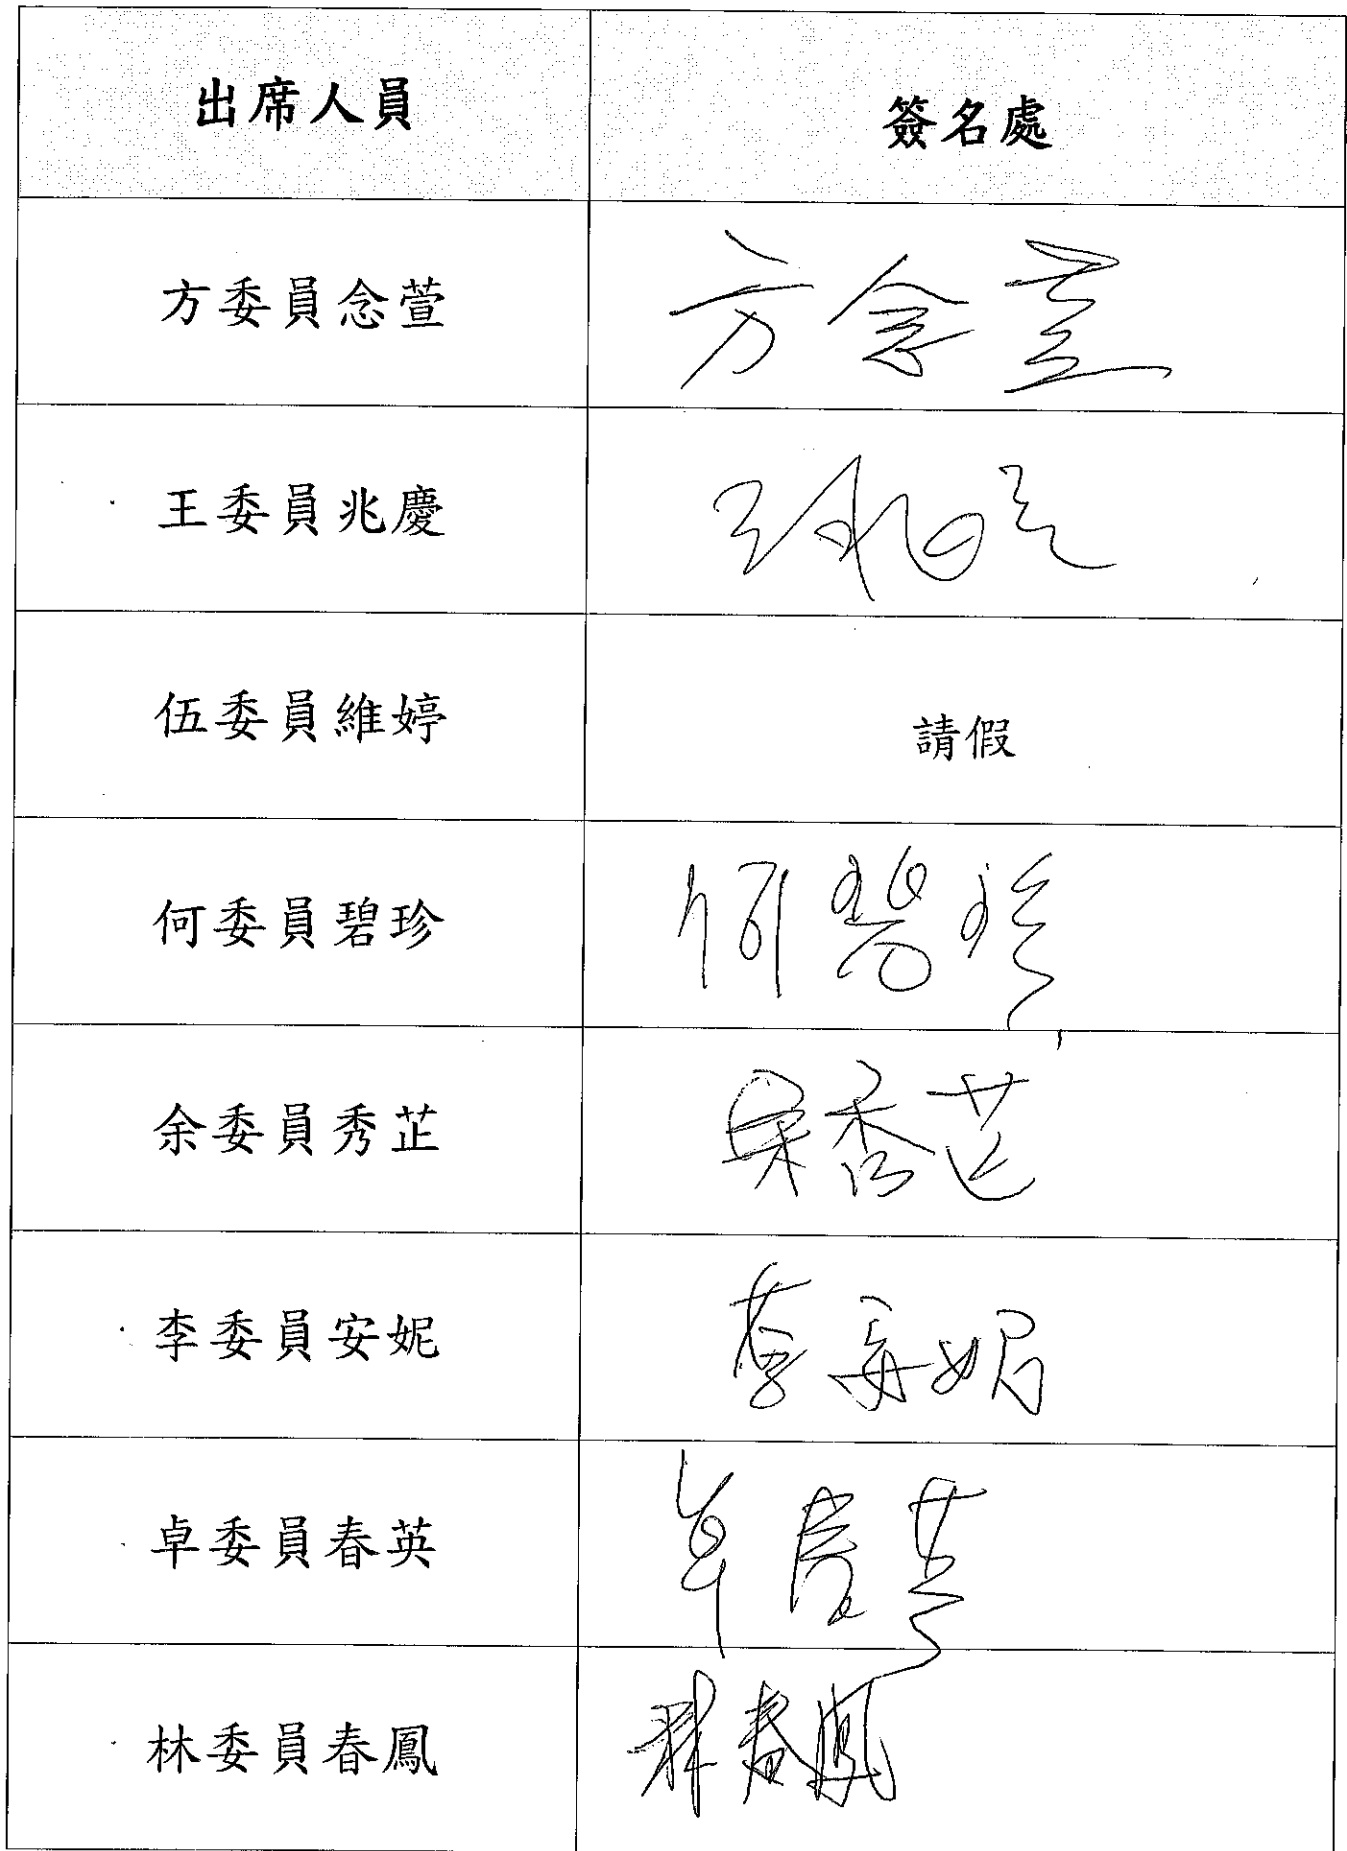 出席人員 簽名處
方委員念萱 方念萱
王委員兆慶 王兆慶
伍委員維婷 請假
何委員碧珍 何碧珍
余委員秀芷 余秀芷
李委員安妮 李安妮
卓委員春英 卓春英
林委員春鳳 林春鳳